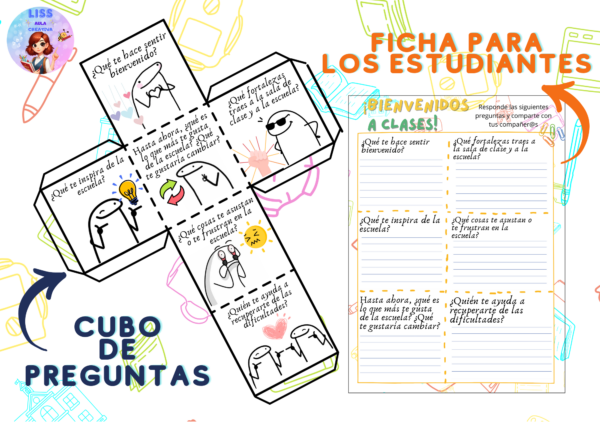 LISS
AULA
CREATIVA
¿Qué te hace sentir
bienvenido?
¿Qué fortalezas
traes a la sala de
clase y a la escuela?
¿Qué te inspira de la
escuela?
Hasta ahora, ¿qué es
lo que más te gusta
de la escuela? ¿Qué
te gustaría cambiar?
¿Qué cosas te asustan
o te frustran en la
escuela?
¿Quién te ayuda a
recuperarte de las
dificultades?
CUBO
DE
PREGUNTAS
FICHA PARA
LOS ESTUDIANTES
¡BIENVENIDOS
A CLASES!
Responde las siguientes
preguntas y comparte con
tus compañer@s
¿Qué te hace sentir
bienvenido?
¿Qué fortalezas traes a
la sala de clase y a la
escuela?
¿Qué te inspira de la
escuela?
¿Qué cosas te asustan o
te frustran en la
escuela?
Hasta ahora, ¿qué es
lo que más te gusta
de la escuela? ¿Qué
te gustaría cambiar?
¿Quién te ayuda a
recuperarte de las
dificultades?